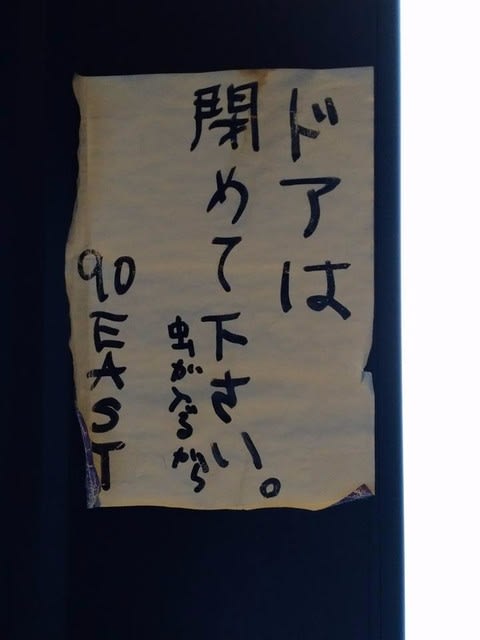 ドアは
閉めて下さい。
虫が入るから
90 EAST